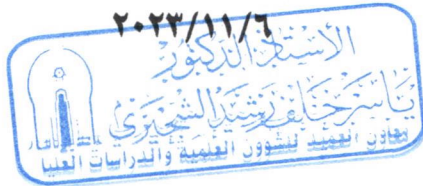 ٢٠٢٣/١١/٦
الأستاذ الدكتور
ياسر خلف رشيد الشجيري
معاون العميد للشؤون العلمية والدراسات العليا